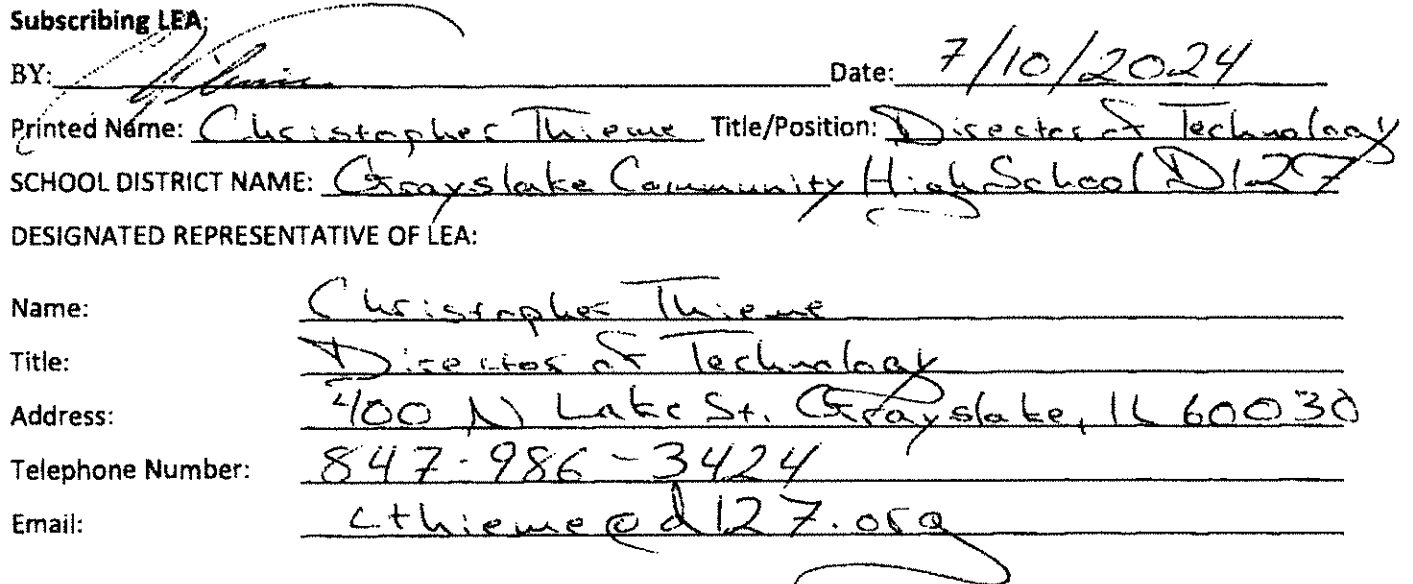 Subscribing LEA:
BY: Date: 7/10/2024
Printed Name: Christopher Thieme Title/Position: Director of Technology
SCHOOL DISTRICT NAME: Grayslake Community High School D127
DESIGNATED REPRESENTATIVE OF LEA:
Name: Christopher Thieme
Title: Director of Technology
Address: 400 N Lake St. Grayslake, IL 60030
Telephone Number: 847-986-3424
Email: cthieme@d127.org